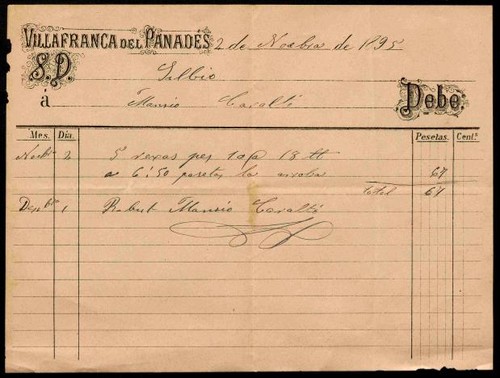 VILLAFRANCA DEL PANADÉS 2 de Nobre de 1895
S. D. Silbio
á Mansio Caraltó Debe
Mes. Dia. Pesetas. Cents.
2 5 rexas pes 10@ 18 tt
a 6'50 pesetas la arroba 67
total 67
1 Rebut Mansio Caraltó